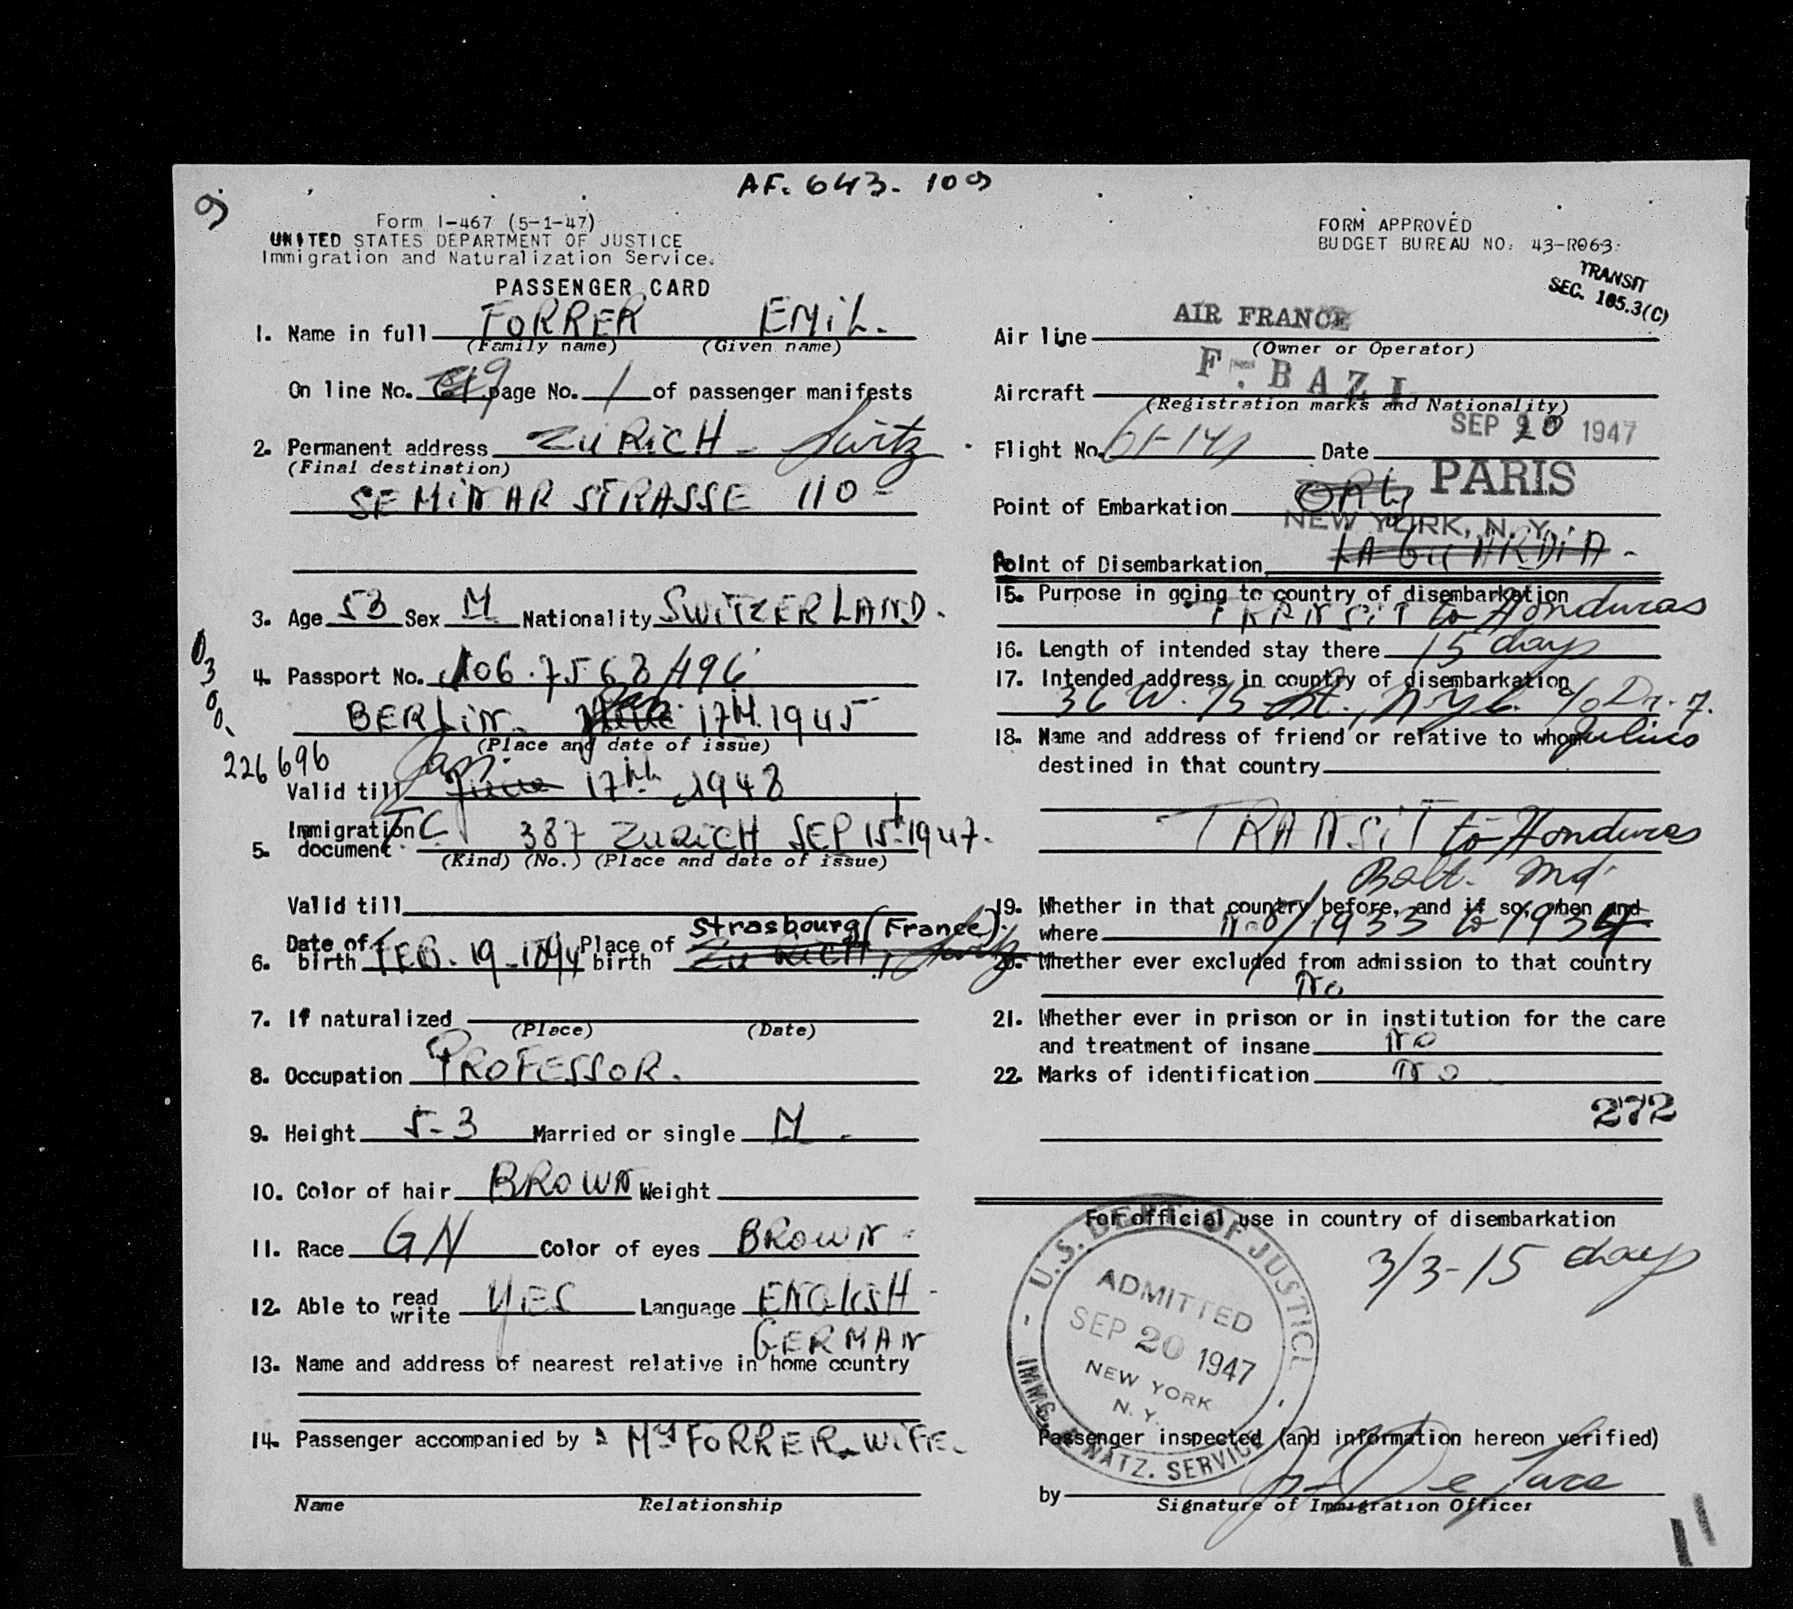 AF. 643. 109
9
Form I-467 (5-1-47)
UNITED STATES DEPARTMENT OF JUSTICE
Immigration and Naturalization Service.
PASSENGER CARD
1. Name in full FORRER EMiL.
(Family name) (Given name)
On line No. 9 page No. 1 of passenger manifests
2. Permanent address ZURiCH -
(Final destination)
SEMiNAR STRASSE 110 -
3. Age 53 Sex M Nationality SWiTZERLAND.
4. Passport No. 106.7568/496
BERLiN. 17th 1945
(Place and date of issue)
0300.
226696
Valid till Jan. June 17th 1948
5. Immigration document T.C. 387 ZURiCH SEP 15th 1947.
(Kind) (No.) (Place and date of issue)
Valid till
6. Date of birth FEB. 19-1894 Place of birth Strasbourg (France).
ZURiCH,
7. If naturalized
(Place) (Date)
8. Occupation PROFESSOR.
9. Height 5-3 Married or single M.
10. Color of hair BROWN Weight
11. Race GN Color of eyes BROWN
12. Able to read write YES Language ENGLiSH
GERMAN
13. Name and address of nearest relative in home country
14. Passenger accompanied by MRS FORRER - WiFE.
Name Relationship
FORM APPROVED
BUDGET BUREAU NO. 43-R063.
TRANSIT
SEC. 105.3(C)
Air line AIR FRANCE
(Owner or Operator)
Aircraft F. BAZI
(Registration marks and Nationality)
Flight No. Date SEP 20 1947
Point of Embarkation ORLY PARIS
NEW YORK, N. Y.
Point of Disembarkation LA GUARDiA -
15. Purpose in going to country of disembarkation
TRANSiT to Honduras
16. Length of intended stay there 15 days
17. Intended address in country of disembarkation
36 W. 75 St., N.Y.C. c/o Dr. J.
18. Name and address of friend or relative to whom Julius
destined in that country
TRANSiT to Honduras
Balt. Md.
19. Whether in that country before, and if so, when and
where No / 1933 to 1934
20. Whether ever excluded from admission to that country
No
21. Whether ever in prison or in institution for the care
and treatment of insane No
22. Marks of identification No
272
For official use in country of disembarkation
3/3-15 days
U.S. DEPT. OF JUSTICE
ADMITTED
SEP 20 1947
NEW YORK
N. Y.
IMMIG. & NATZ. SERVICE
Passenger inspected (and information hereon verified)
by
Signature of Immigration Officer
11